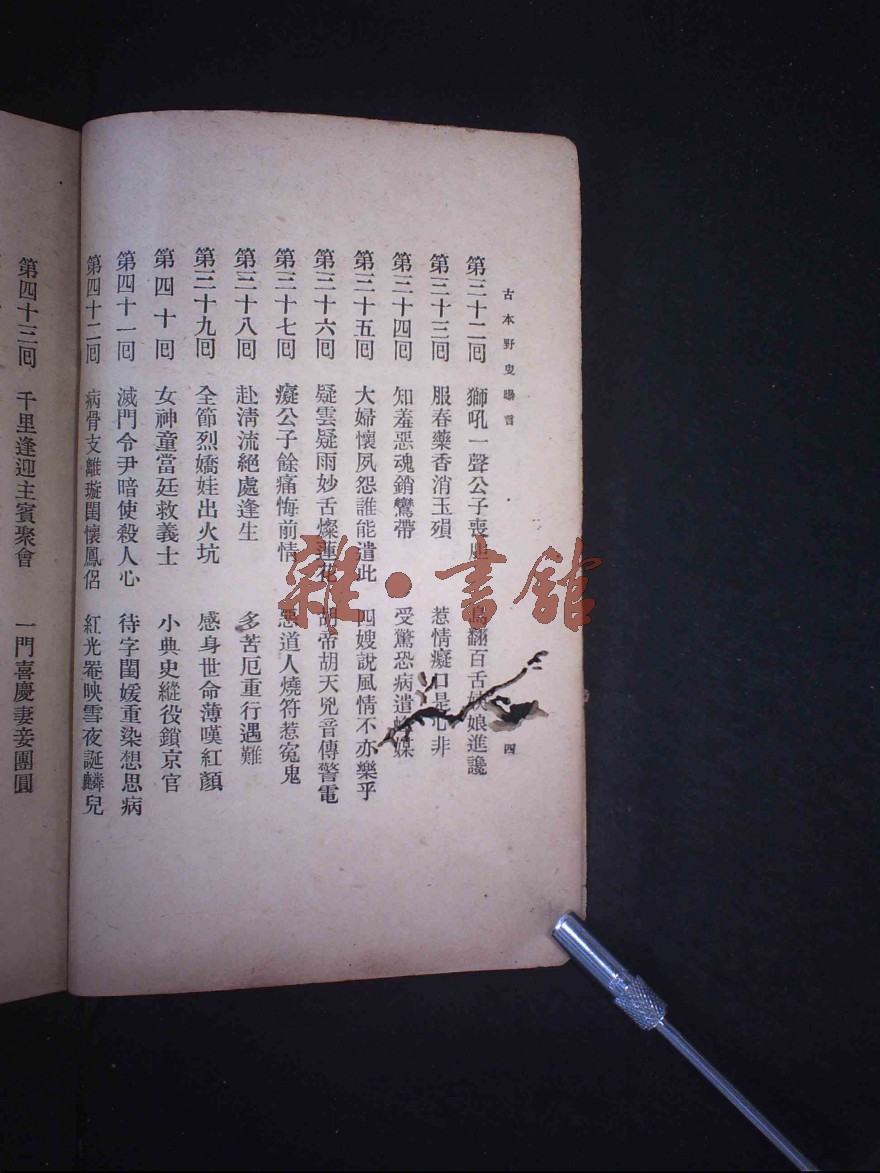 古本野叟曝言
四
第三十二回 獅吼一聲公子喪 翻百舌 娘進讒
第三十三回 服春藥香消玉殞 惹情癡口是心非
第三十四回 知羞惡魂銷鸞帶 受驚恐病遺蜂媒
第三十五回 大婦懷夙怨誰能遣此 四嫂說風情不亦樂乎
第三十六回 疑雲疑雨妙舌燦蓮花 胡帝胡天兇音傳警電
第三十七回 癡公子餘痛悔前情 惡道人燒符惹寃鬼
第三十八回 赴淸流絕處逢生 多苦厄重行遇難
第三十九回 全節烈嬌娃出火坑 感身世命薄嘆紅顏
第四十回 女神童當廷救義士 小典史縱役鎖京官
第四十一回 滅門令尹暗使殺人心 待字閨媛重染想思病
第四十二回 病骨支離璇閨懷鳳侶 紅光罨映雪夜誕麟兒
第四十三回 千里逢迎主賓聚會 一門喜慶妻妾團圓
雜·書館